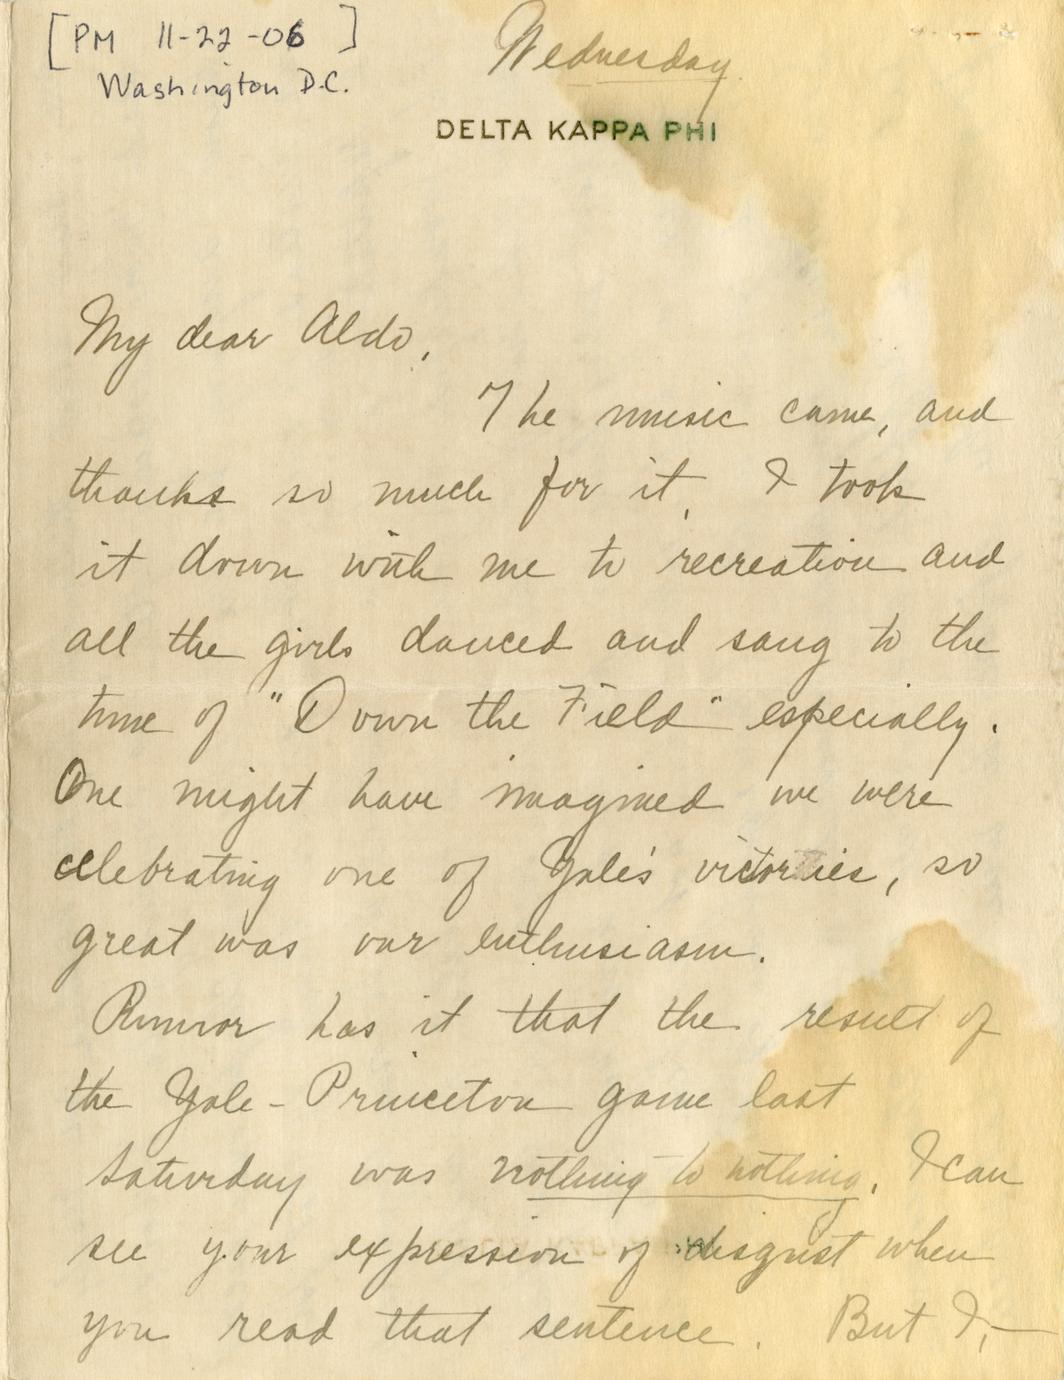 [PM 11-22-06]
Washington D.C.
Wednesday.
DELTA KAPPA PHI
My dear Aldo,
The music came, and
thanks so much for it. I took
it down with me to recreation and
all the girls danced and sang to the
tune of "Down the Field" especially.
One might have imagined we were
celebrating one of Yale's victories, so
great was our enthusiasm.
Rumor has it that the result of
the Yale-Princeton game last
Saturday was nothing to nothing. I can
see your expression of disgust when
you read that sentence. But I,—